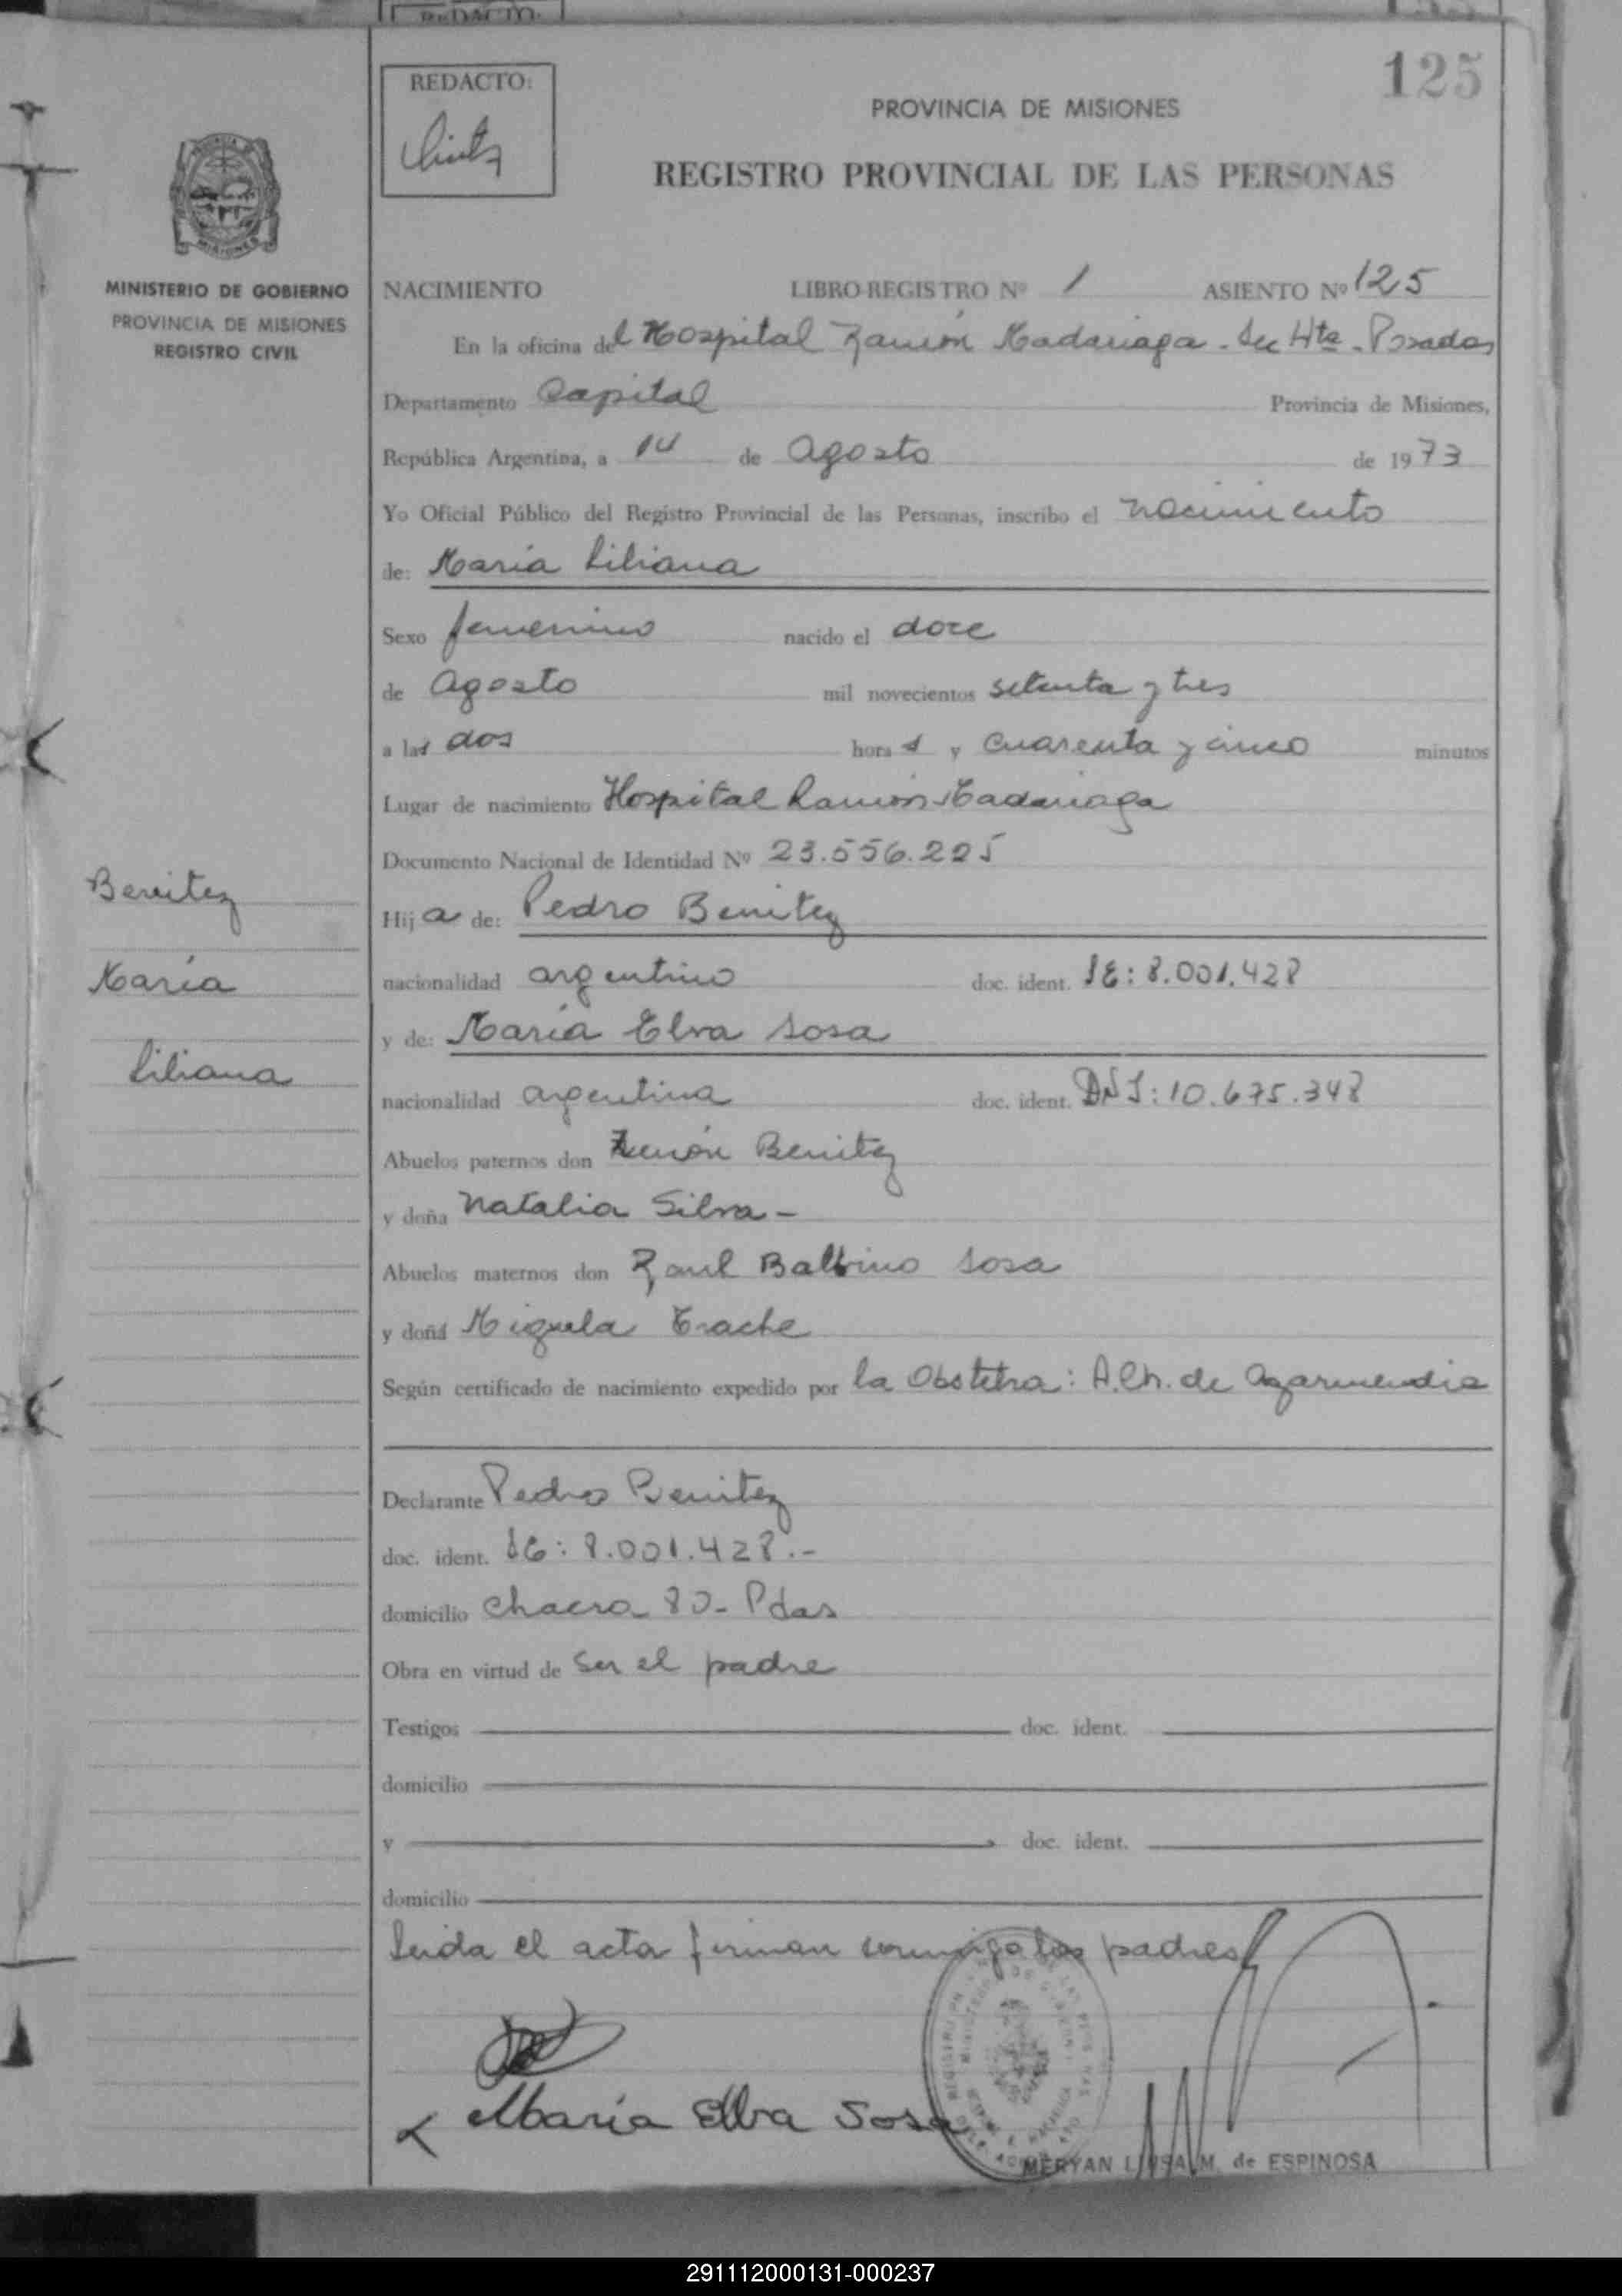 125
REDACTO:
PROVINCIA DE MISIONES
REGISTRO PROVINCIAL DE LAS PERSONAS
MINISTERIO DE GOBIERNO
PROVINCIA DE MISIONES
REGISTRO CIVIL
NACIMIENTO LIBRO-REGISTRO Nº 1 ASIENTO Nº 125
En la oficina del Hospital Ramón Madariaga - Posadas
Departamento Capital Provincia de Misiones,
República Argentina, a 14 de Agosto de 1973
Yo Oficial Público del Registro Provincial de las Personas, inscribo el nacimiento
de: María Liliana
Sexo femenino nacido el doce
de Agosto mil novecientos setenta y tres
a las dos horas y cuarenta y cinco minutos
Lugar de nacimiento Hospital Ramón Madariaga
Documento Nacional de Identidad Nº 23.556.225
Hija de: Pedro Benitez
nacionalidad argentino doc. ident. LE: 8.001.428
y de: María Elva Sosa
nacionalidad argentina doc. ident. DNI: 10.675.348
Abuelos paternos don Zenón Benitez
y doña Natalia Silva -
Abuelos maternos don Raul Balbino Sosa
y doña Miguela Erache
Según certificado de nacimiento expedido por la Obstetra: A. Ch. de Agarmendia
Declarante Pedro Benitez
doc. ident. LE: 8.001.428.-
domicilio Chacra 80 - Pdas
Obra en virtud de ser el padre
Testigos doc. ident.
domicilio
y doc. ident.
domicilio
Leida el acta firman conmigo los padres
María Elba Sosa
MERYAN LUISA M. de ESPINOSA
Benitez
María
Liliana
291112000131-000237